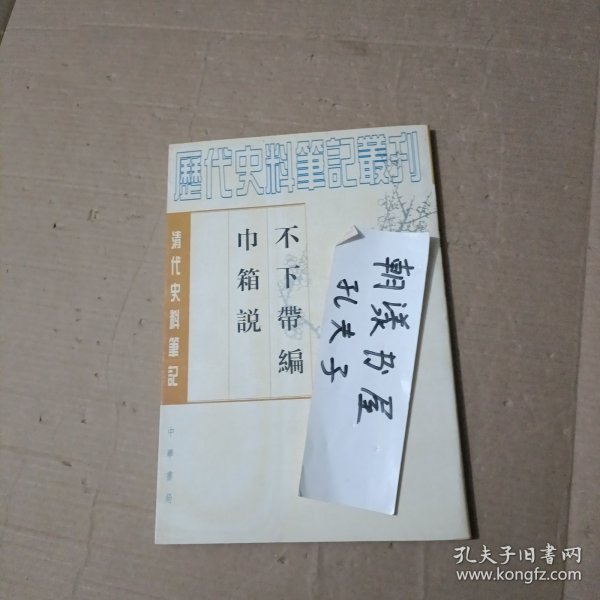 歷代史料筆記叢刊
清代史料筆記
不下帶編
巾箱説
中華書局
朝漾书屋
孔夫子
孔夫子旧書网
www.kongfz.com